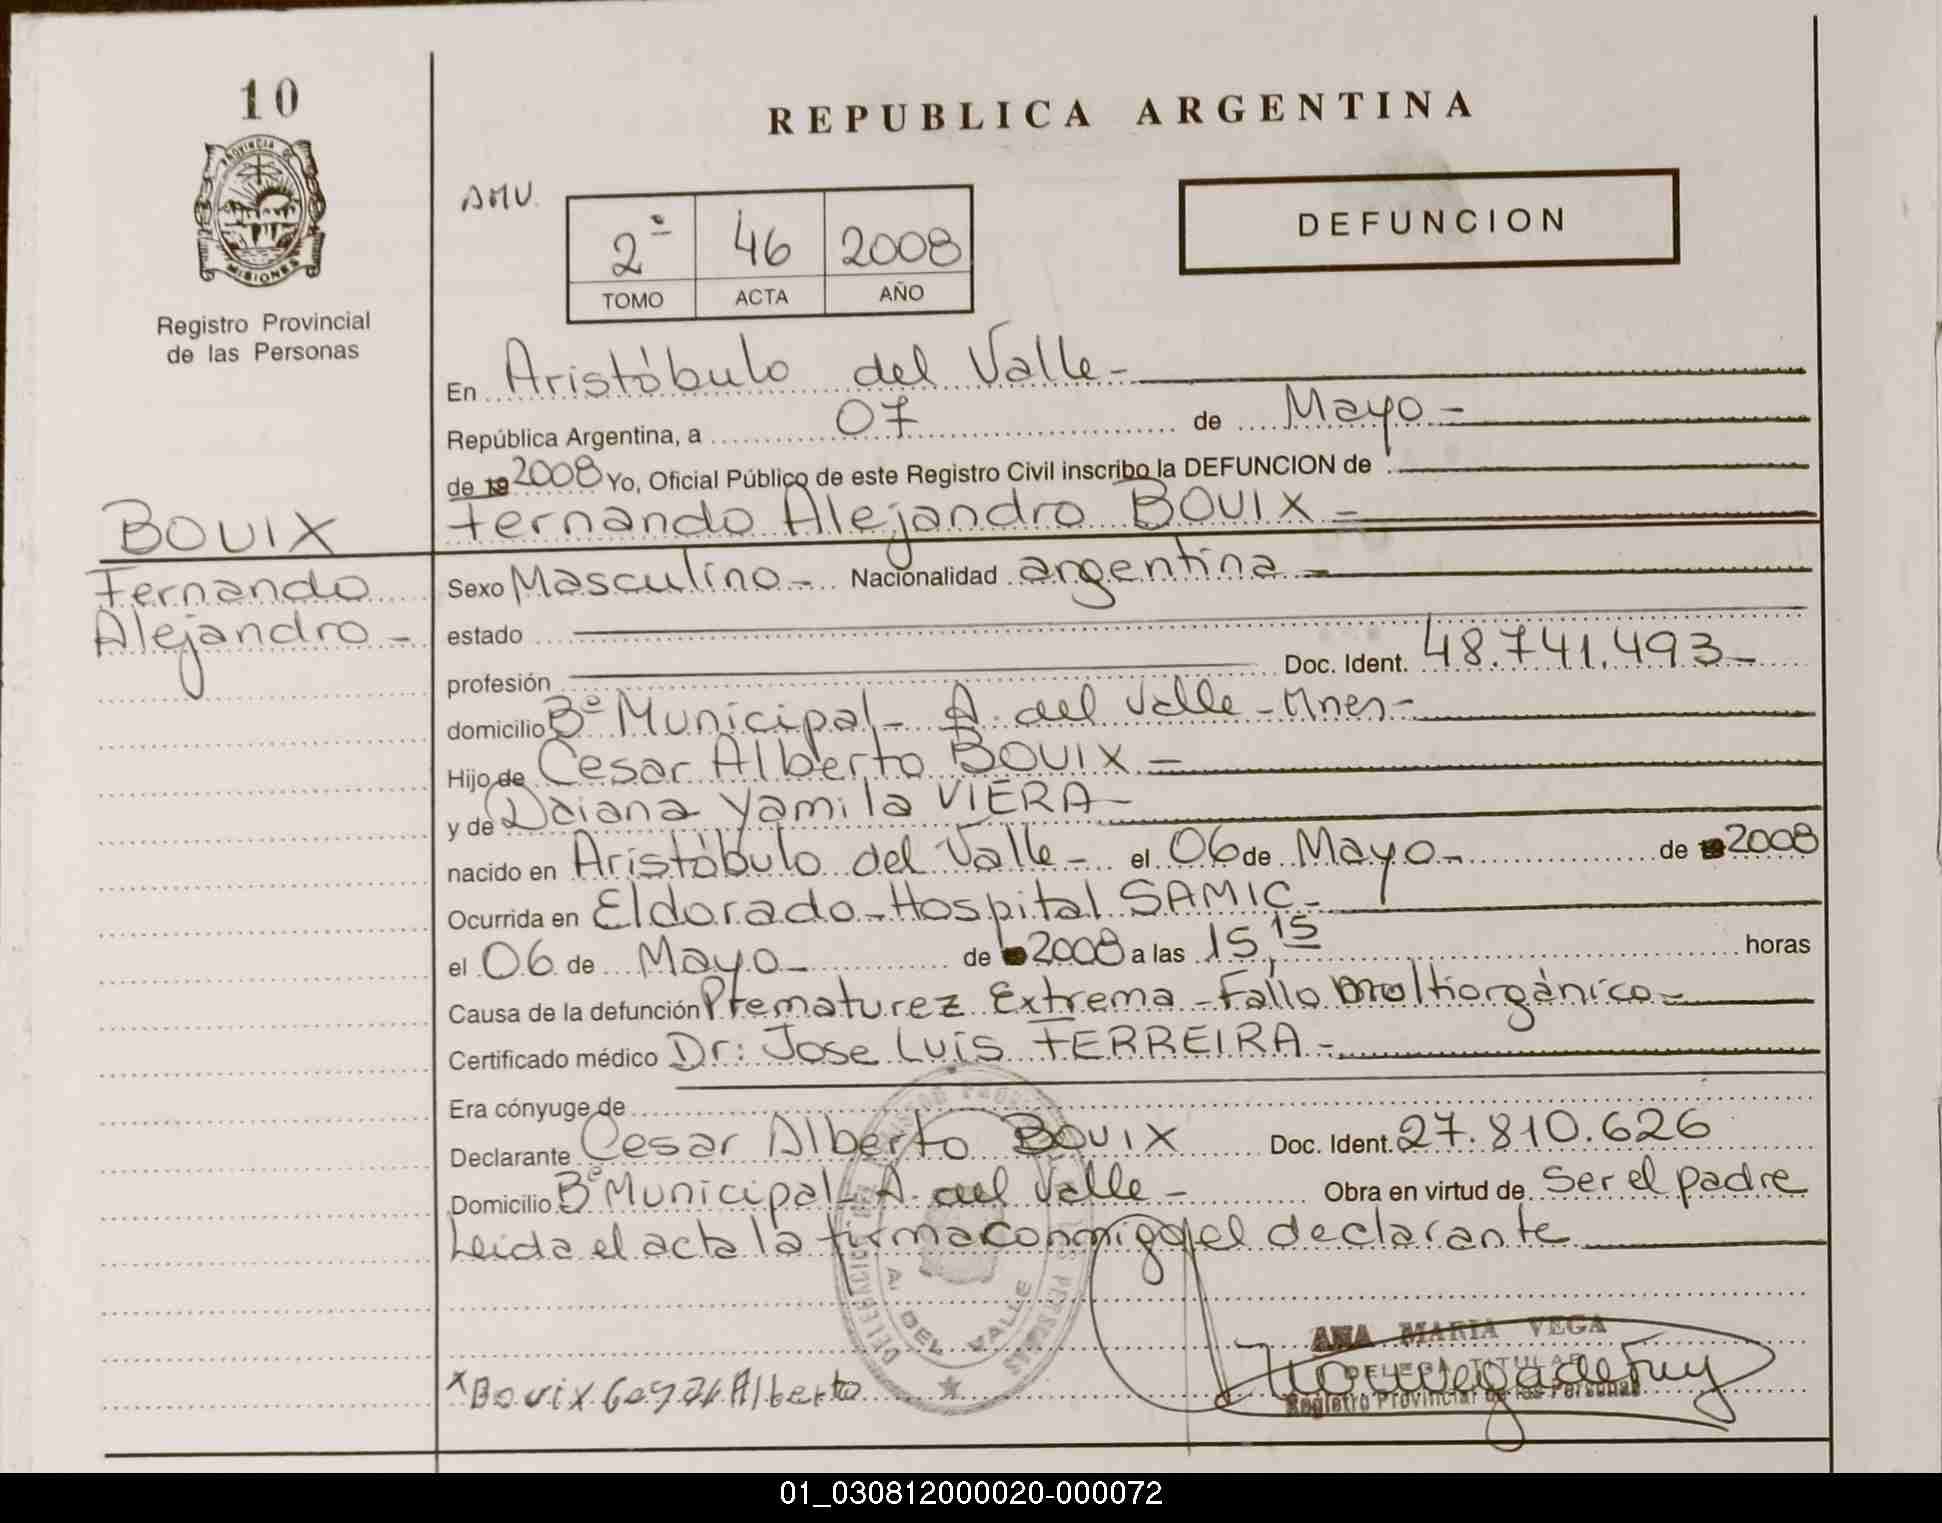 10
PROVINCIA DE
MISIONES
Registro Provincial
de las Personas
REPUBLICA ARGENTINA
AMV.
2º 46 2008
TOMO ACTA AÑO
DEFUNCION
En Aristóbulo del Valle -
República Argentina, a 07 de Mayo -
de 19 2008 Yo, Oficial Público de este Registro Civil inscribo la DEFUNCION de
BOUIX
Fernando Alejandro BOUIX -
Fernando
Alejandro -
Sexo Masculino - Nacionalidad argentina -
estado
profesión Doc. Ident. 48.741.493 -
domicilio Bº Municipal - A. del Valle - Mnes -
Hijo de Cesar Alberto BOUIX -
y de Daiana Yamila VIERA -
nacido en Aristóbulo del Valle - el 06 de Mayo - de 2008
Ocurrida en Eldorado - Hospital SAMIC -
el 06 de Mayo - de 2008 a las 15,15 horas
Causa de la defunción Prematurez Extrema - Fallo multiorgánico -
Certificado médico Dr: Jose Luis FERREIRA -
Era cónyuge de
Declarante Cesar Alberto BOUIX Doc. Ident. 27.810.626
Domicilio Bº Municipal - A. del Valle - Obra en virtud de Ser el padre
Leida el acta la firma conmigo el declarante
A. DEL VALLE
ANA MARIA VEGA
DELEGADA TITULAR
Registro Provincial de las Personas
x Bouix Cesar Alberto
01_030812000020-000072